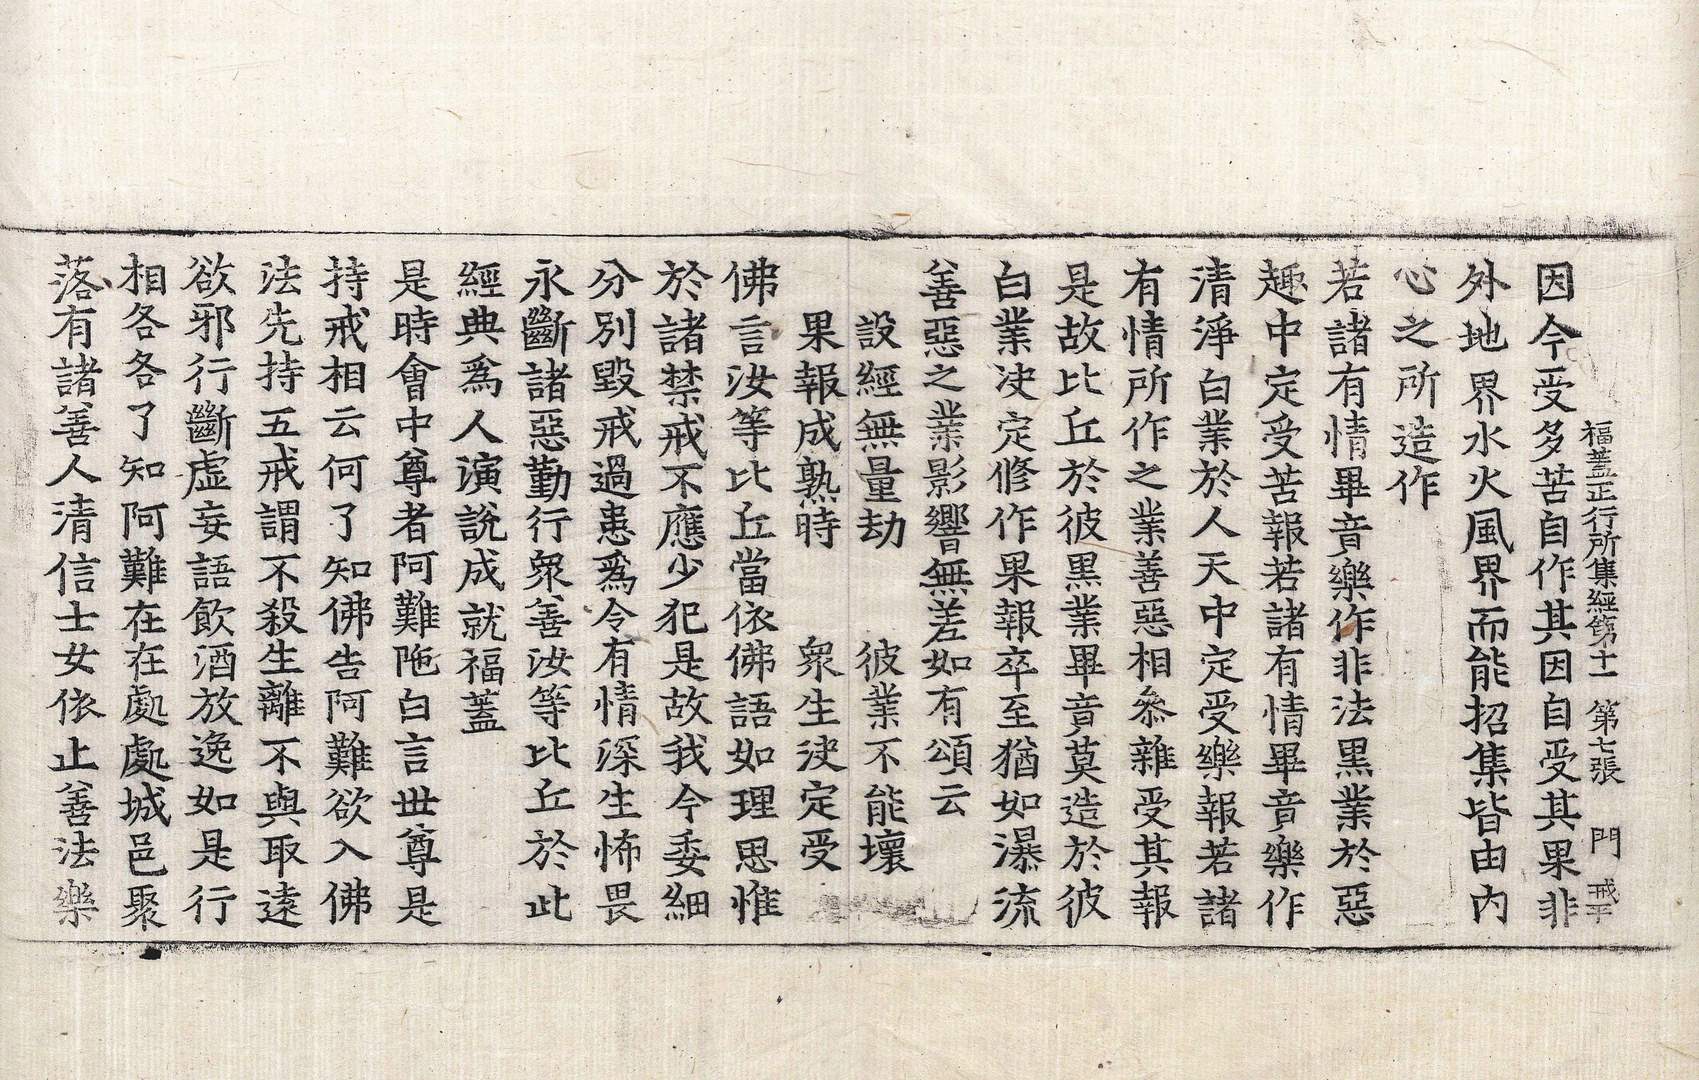 福蓋正行所集經第十一　第七張　門
因今受多苦自作其因自受其果非
外地界水火風界而能招集皆由內
心之所造作
若諸有情畢竟樂作非法黑業於惡
趣中定受苦報若諸有情畢竟樂作
清淨白業於人天中定受樂報若諸
有情所作之業善惡相叅雜受其報
是故比丘於彼黑業畢竟莫造於彼
白業决定修作果報卒至猶如瀑流
善惡之業影響無差如有頌云
設經無量劫　彼業不能壞
果報成熟時　衆生决定受
佛言汝等比丘當依佛語如理思惟
於諸禁戒不應少犯是故我今委細
分別毀戒過患爲令有情深生怖畏
永斷諸惡勤行衆善汝等比丘於此
經典爲人演說成就福蓋
是時會中尊者阿難陁白言世尊是
持戒相云何了知佛告阿難欲入佛
法先持五戒謂不殺生離不與取遠
欲邪行斷虛妄語飮酒放逸如是行
相各各了知阿難在在處處城邑聚
落有諸善人清信士女依止善法樂